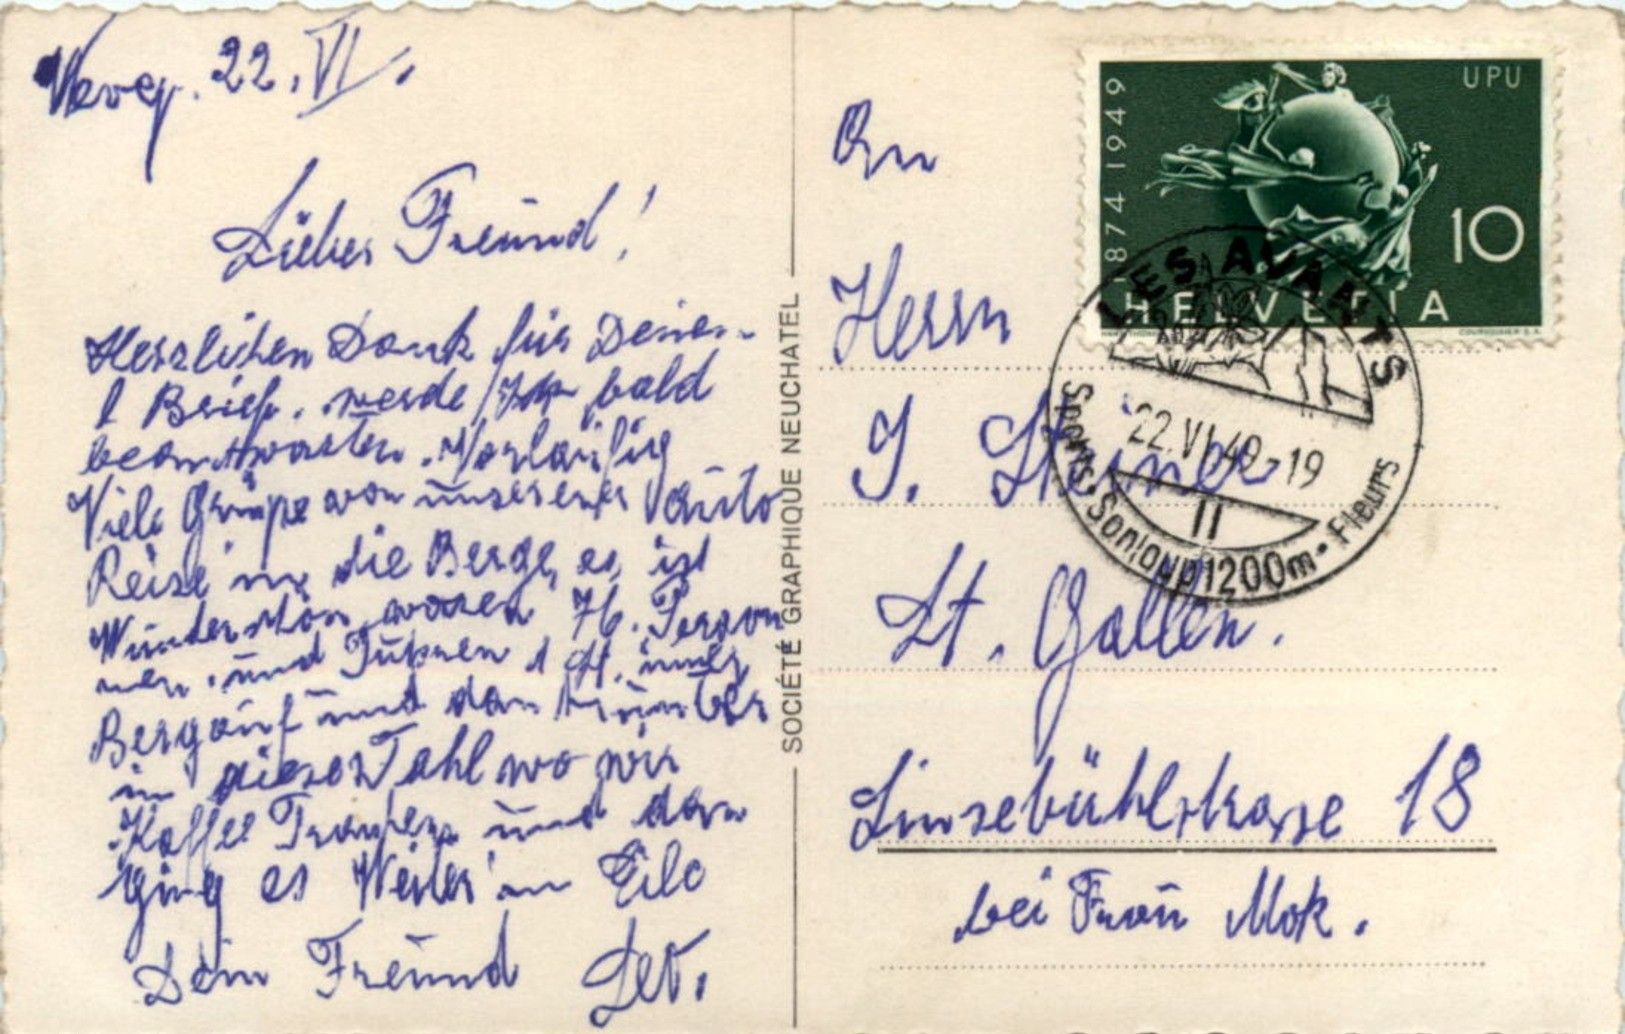 Vevey. 22. VI.
Lieber Freund!
Herzlichen Dank für Deinen
l Brief. werde Ihn bald
beantworten. Vorläufig
Viele Grüße von unserer Auto
Reise in die Berge, es ist
Wunderschön waren 76. Person
nen. und fuhren 1 St. immer
Bergauf und dan hinunter
in dieses Tahl wo wir
Kaffee Tranken und dan
ging es Weiter in Eile
Dein Freund Leo.
SOCIÉTÉ GRAPHIQUE NEUCHATEL
An
Herrn
J. Steiner
St. Gallen.
Linsebühlstrasse 18
bei Frau Mok.
1874 1949
UPU
10
HELVETIA
COURVOISIER S.A.
LES AVANTS
22.VI.49-19
II
Sports • Sonloup 1200m • Fleurs